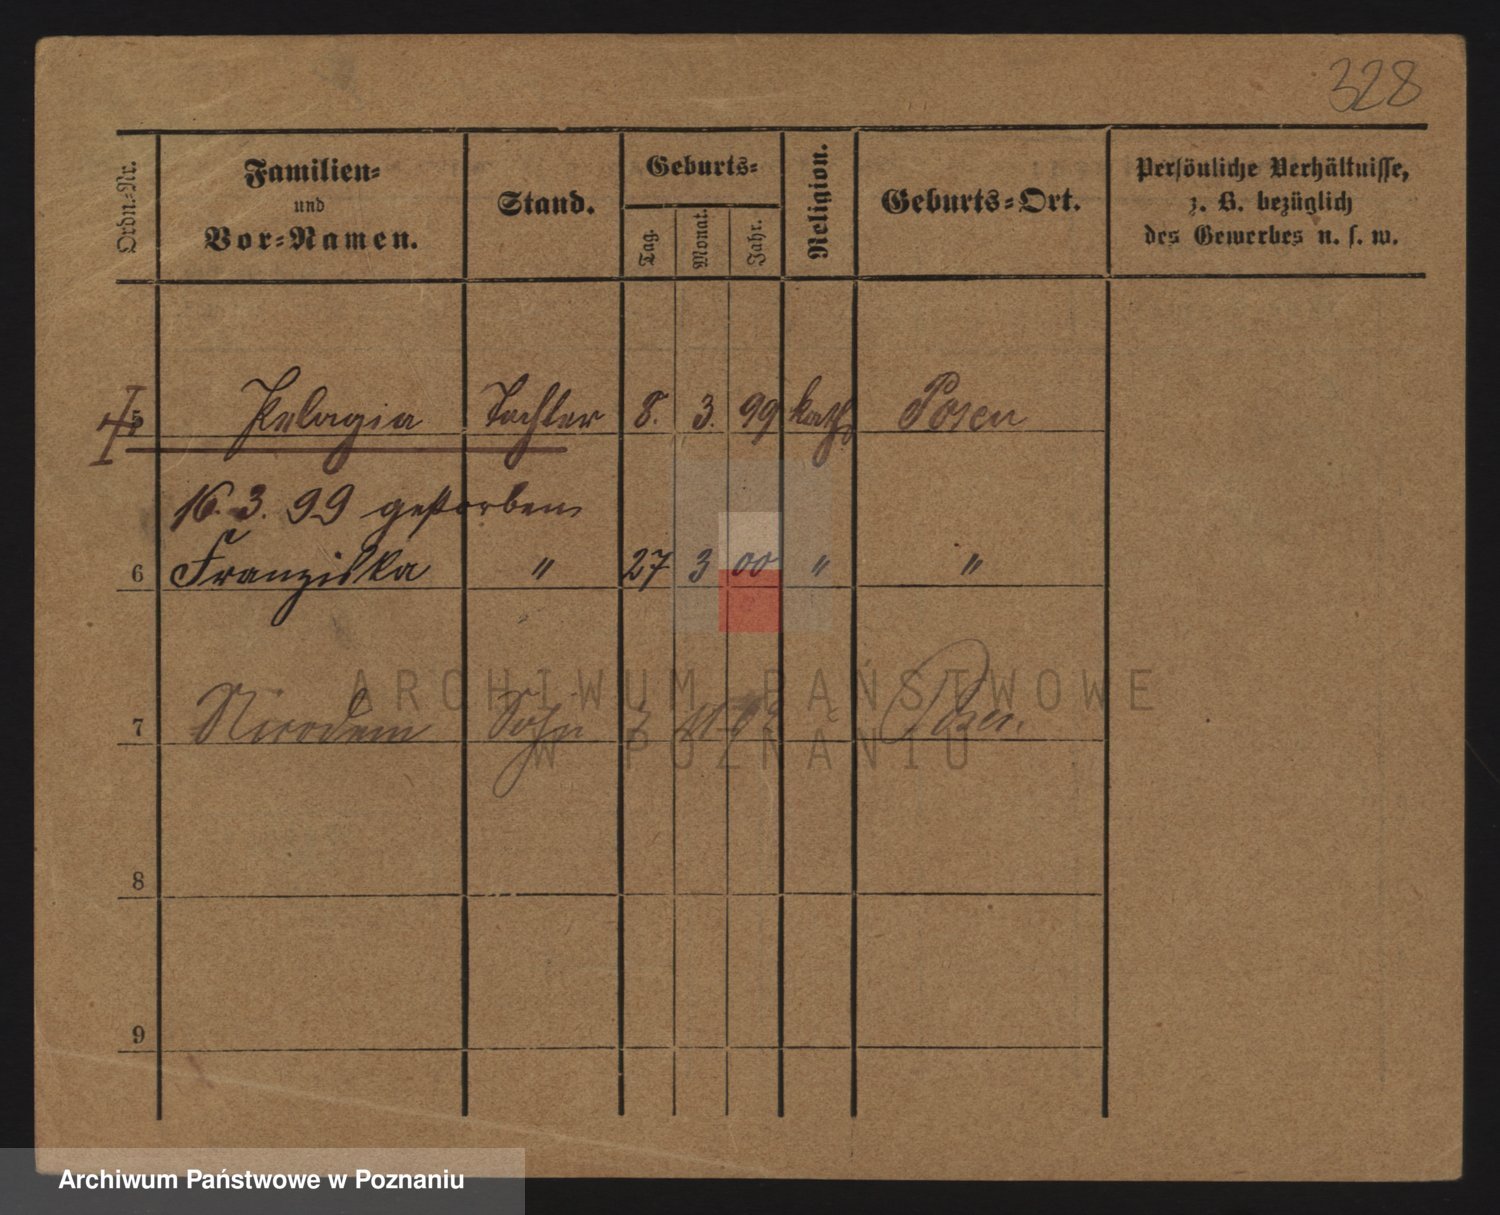 328
Ordn.-Nr.
Familien-
und
Vor-Namen.
Stand.
Geburts-
Tag.
Monat.
Jahr.
Religion.
Geburts-Ort.
Persönliche Verhältnisse,
z. B. bezüglich
des Gewerbes u. s. w.
5 Pelagia Tochter 8. 3. 99 kath Posen
16. 3. 99 gestorben
6 Franziska " 27 3 00 " "
7 Nicodem Sohn Posen
8
9
ARCHIWUM PAŃSTWOWE
W POZNANIU
Archiwum Państwowe w Poznaniu